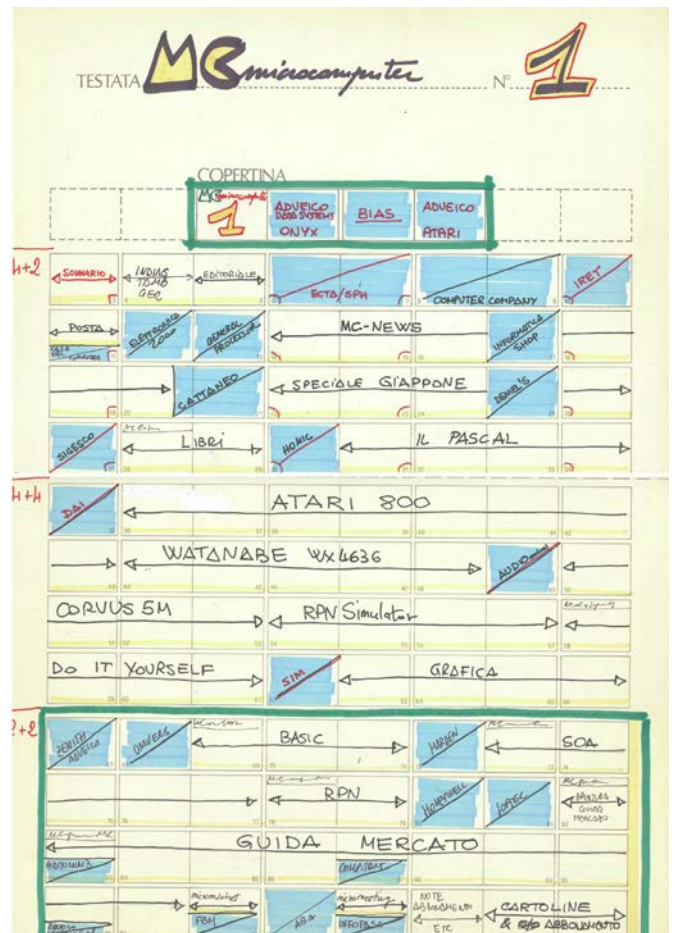 TESTATA MC microcomputer N° 1
COPERTINA
MC microcomputer 1
ADVEICO DATA SYSTEMS ONYX
BIAS
ADVEICO ATARI
4+2
SOMMARIO
EDITORIALE
ECTA/SPH
COMPUTER COMPANY
IRET
POSTA
ELETTRONICA 2000
GENERAL PROCESSOR
MC-NEWS
INFORMATICA SHOP
CATTANEO
SPECIALE GIAPPONE
SIGESCO
LIBRI
HOMIC
IL PASCAL
4+4
DAI
ATARI 800
WATANABE WX4636
CORVUS 5M
RPN Simulator
DO IT YOURSELF
SIM
GRAFICA
2+2
ZENITH ADVEICO
BASIC
HARDEN
SOA
RPN
HONEYWELL
GUIDA MERCATO
COMPITANT
micromarket
FBM
ABA
micromeeting
INFOPASS
NOTE ABBONAMENTO ETC
CARTOLINE
& ABBONAMENTO